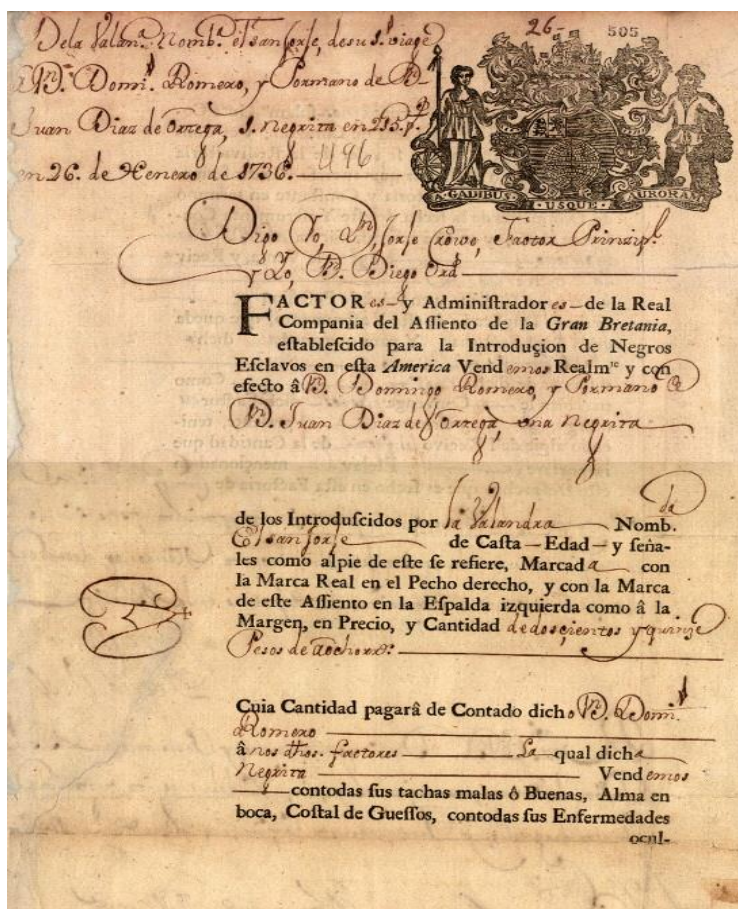 26- 505
Dela Valan.ª Nomb.ª el San Jorje, de su 1. viage
â Dⁿ. Domⁿ. Romero, y Pormano de Dⁿ
Juan Diaz de Ortega, 1. negrita en 215. pˢ
en 26. de Henero de 1736. 496
A·GADIBUS · USQUE · AURORAM
Digo Yo, Dⁿ. Jorje Crowe, Factor Prinzip.ˡ
y Yo, Dⁿ. Diego Ord
FACTOR es — y Administrador es — de la Real
Compania del Aſſiento de la Gran Bretania,
eſtableſcido para la Introduçion de Negros
Eſclavos en eſta America Vend emos Realmᵗᵉ y con
efecto â Dⁿ. Domingo Romero, y Pormano de
Dⁿ. Juan Diaz de Ortega, una negrita
de los Introduſcidos por la Valandra Nomb. da
El San Jorje de Caſta — Edad — y ſeña-
les como alpie de eſte ſe refiere, Marcad a con
la Marca Real en el Pecho derecho, y con la Marca
de eſte Aſſiento en la Eſpalda izquierda como â la
Margen, en Precio, y Cantidad de doscientos y quinze
Pesos de aocho rrˢ.
Cuia Cantidad pagarâ de Contado dicho Dⁿ. Domⁿ.
Romero
â nos dhos. factores La qual dicha
Negrita Vend emos
contodas ſus tachas malas ô Buenas, Alma en
boca, Coſtal de Gueſſos, contodas ſus Enfermedades
ocul-